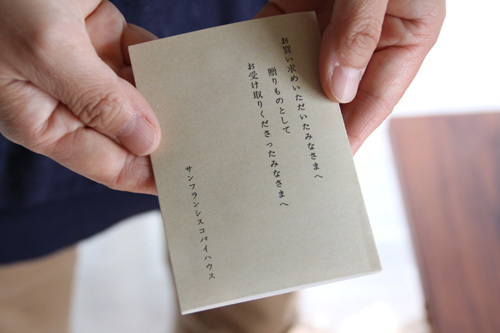 お買い求めいただいたみなさまへ
贈りものとして
お受け取りくださったみなさまへ
サンフランシスコパイハウス